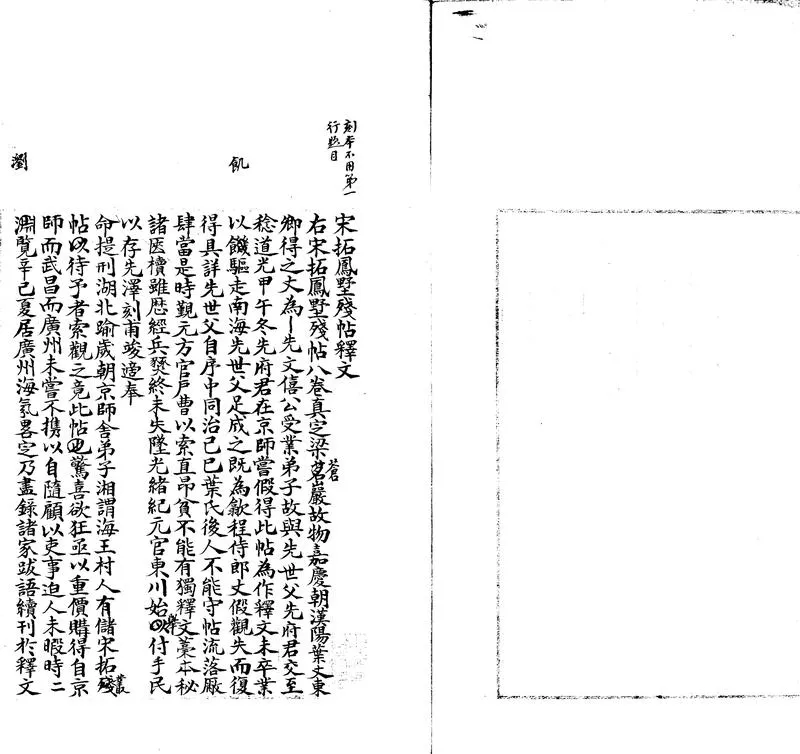 刻本不用第一
行題目
宋拓鳳墅殘帖釋文
右宋拓鳳墅殘帖八卷真定梁蒼巖故物嘉慶朝漢陽葉丈東
卿得之丈為先文僖公受業弟子故與先世父先府君交至
稔道光甲午冬先府君在京師嘗假得此帖為作釋文未卒業
飢
以饑驅走南海先世父足成之既為歙程侍郎丈假觀失而復
得具詳先世父自序中同治己巳葉氏後人不能守帖流落廠
肆當是時觀元方官戶曹以索直昂貧不能有獨釋文藁本秘
諸匧櫝雖歷經兵燹終未失墜光緒紀元官東川始付手民
以存先澤刻甫竣適奉
命提刑湖北踰歲朝京師舍弟子湘謂海王村人有儲宋拓殘
叢
帖以待予者索觀之竟此帖也驚喜欲狂亟以重價購得自京
師而武昌而廣州未嘗不攜以自隨顧以吏事迫人未暇時二
瀏
渊覽辛巳夏居廣州海氛畧定乃盡錄諸家跋語續刊於釋文